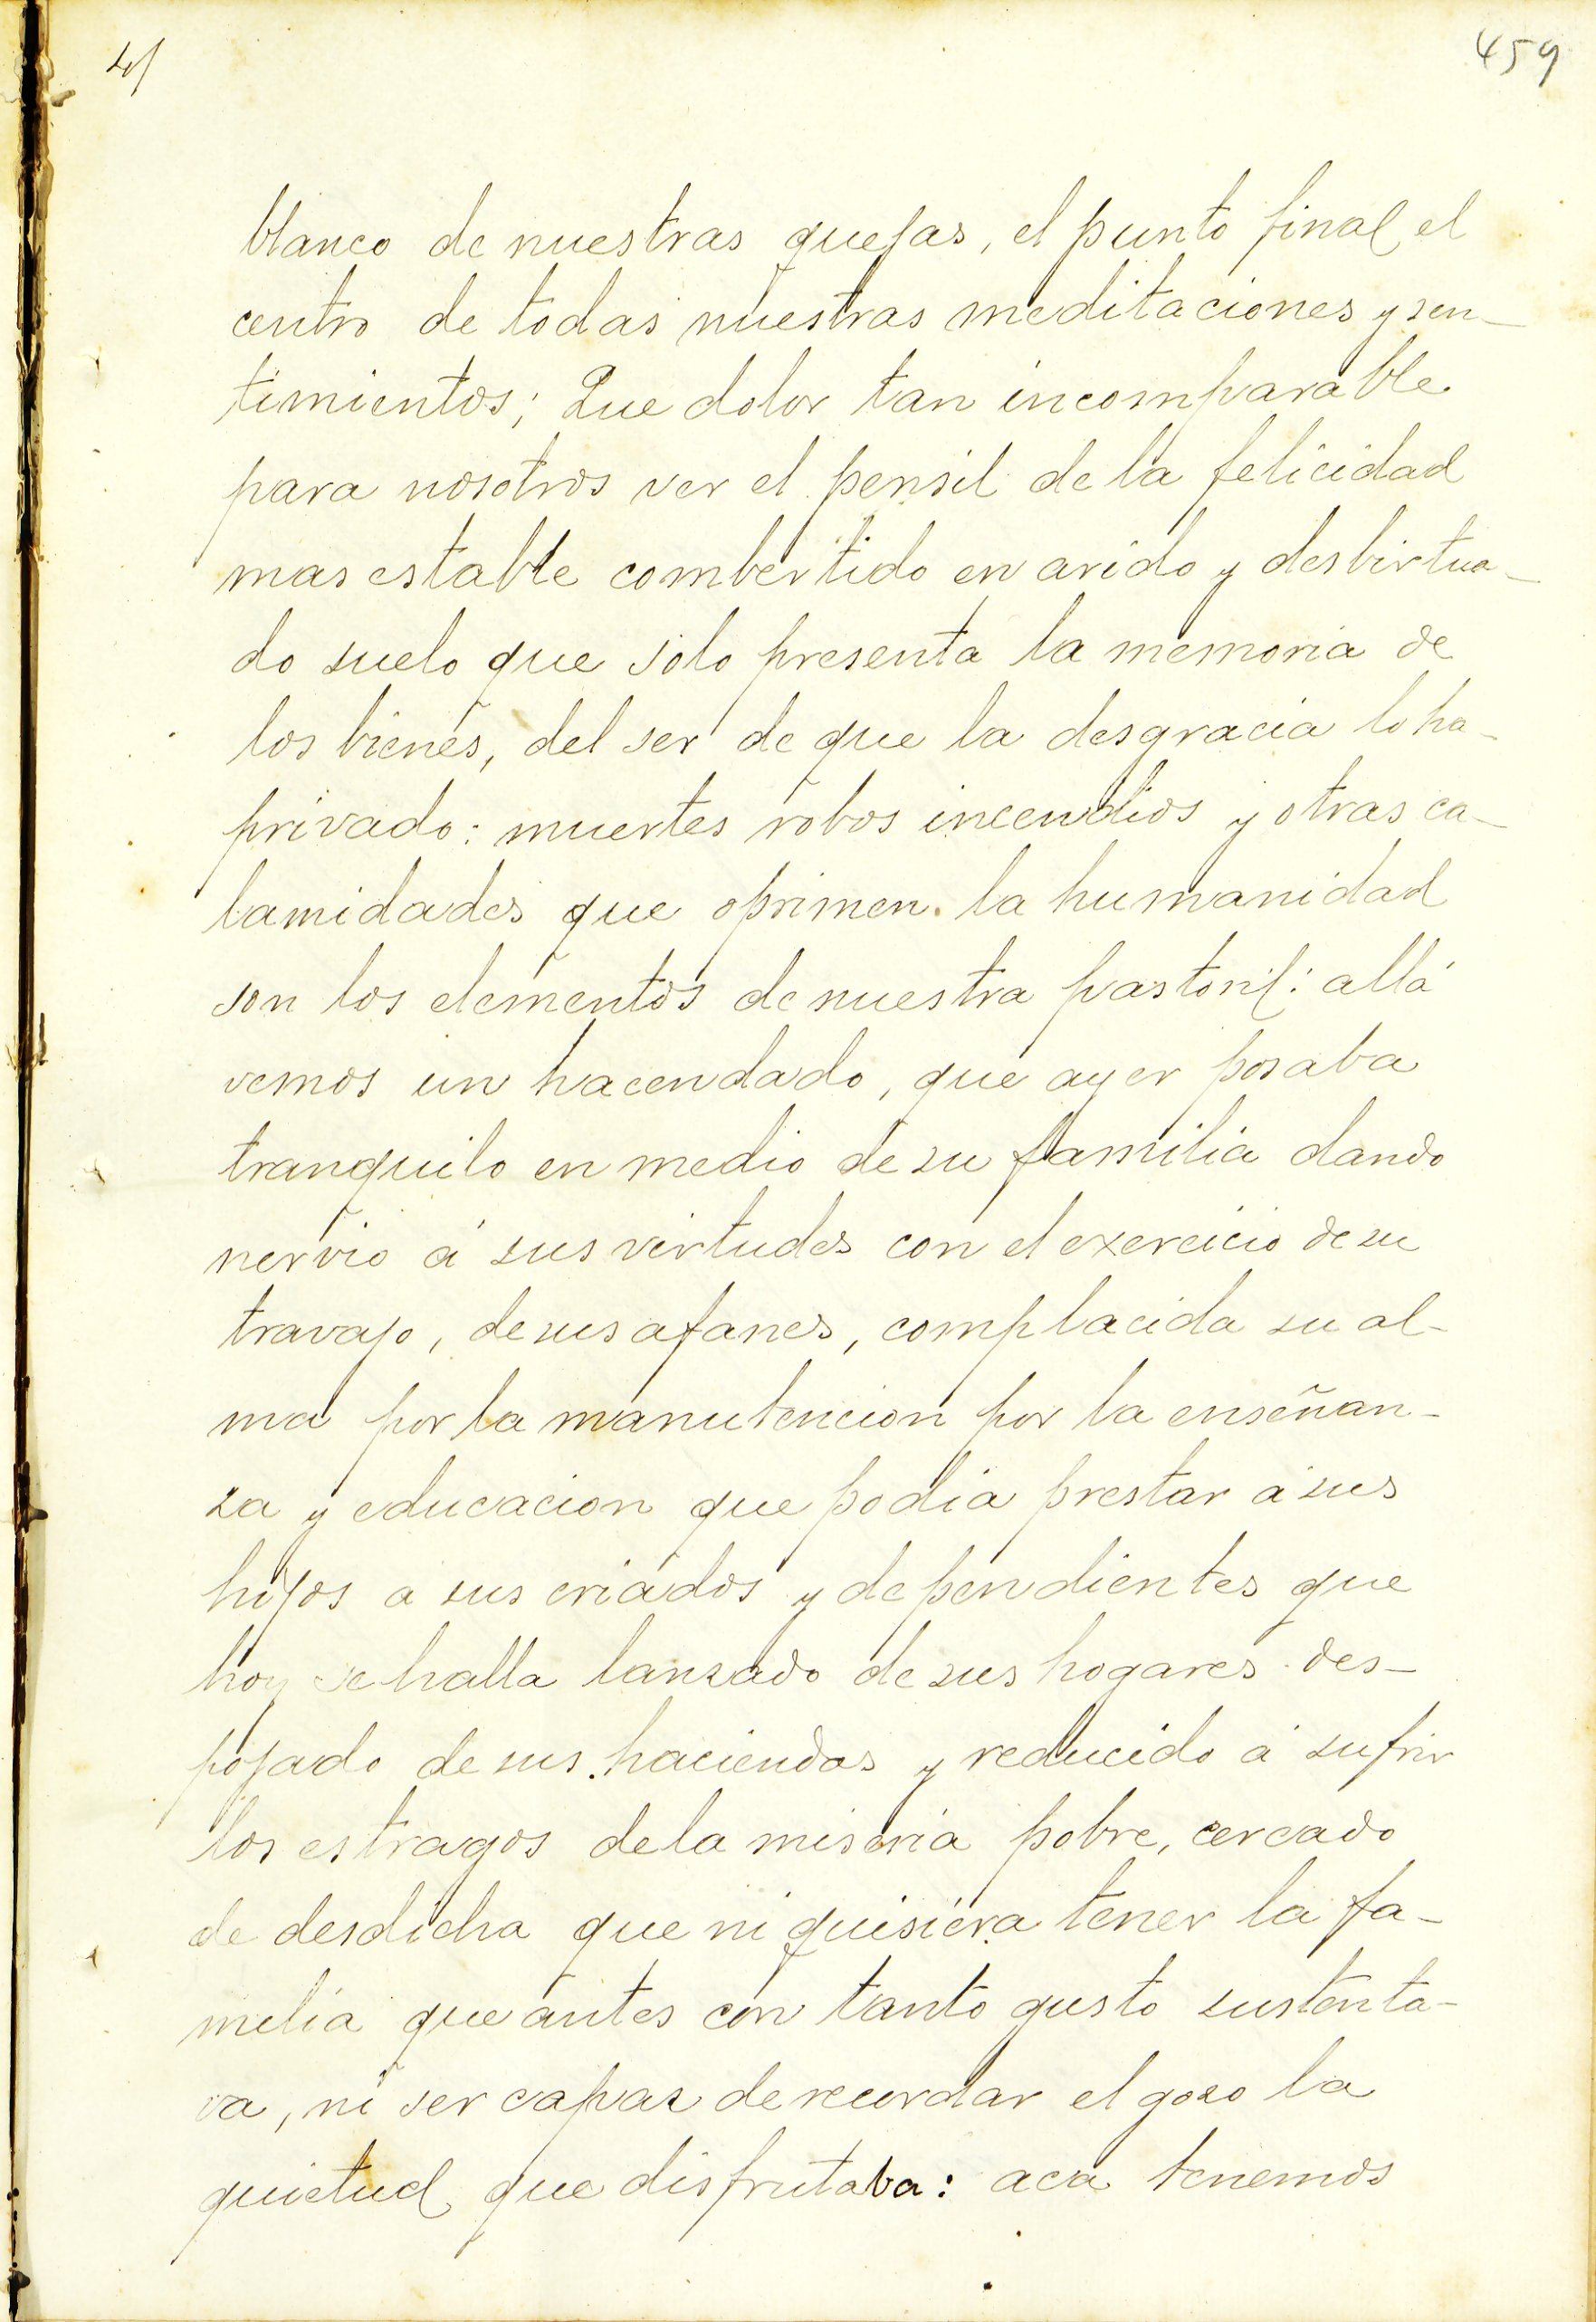 4/
459
blanco de nuestras quejas, el punto final el
centro de todas nuestras meditaciones y sen-
timientos; Que dolor tan incomparable
para nosotros ver el pensil de la felicidad
mas estable combertido en arido y desbirtua-
do suelo que solo presenta la memoria de
los bienes, del ser de que la desgracia lo ha-
privado: muertes robos incendios y otras ca-
lamidades que oprimen la humanidad
son los elementos de nuestra pastoril: allá
vemos un hacendado, que ayer posaba
tranquilo en medio de su familia dando
nervio á sus virtudes con el exercicio de su
travajo, de sus afanes, complacida su al-
ma por la manutencion por la enseñan-
za y educacion que podia prestar á sus
hijos a sus criados y dependientes que
hoy se halla lanzado de sus hogares des-
pojado de sus haciendas y reducido á sufrir
los estragos de la miseria pobre, cercado
de desdicha que ni quisiera tener la fa-
milia que antes con tanto gusto sustenta-
va, ni ser capaz de recordar el gozo la
quietud que disfrutaba: aca tenemos